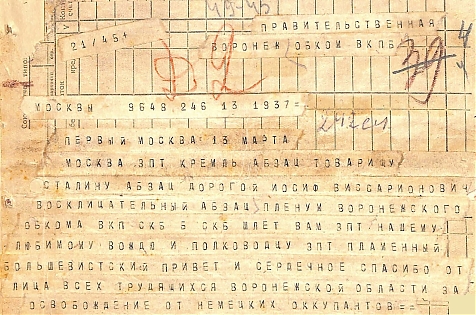 49-45
ПРАВИТЕЛЬСТВЕННАЯ
21/45+
ВОРОНЕЖ ОБКОМ ВКПБ
39
МОСКВЫ 9648 246 13 1937=
242сл
ПЕРВЫЙ МОСКВА 13 МАРТА
МОСКВА ЗПТ КРЕМЛЬ АБЗАЦ ТОВАРИЩУ
СТАЛИНУ АБЗАЦ ДОРОГОЙ ИОСИФ ВИССАРИОНОВИЧ
ВОСКЛИЦАТЕЛЬНЫЙ АБЗАЦ ПЛЕНУМ ВОРОНЕЖСКОГО
ОБКОМА ВКП СКБ Б СКБ ШЛЕТ ВАМ ЗПТ НАШЕМУ
ЛЮБИМОМУ ВОЖДЮ И ПОЛКОВОДЦУ ЗПТ ПЛАМЕННЫЙ
БОЛЬШЕВИСТСКИЙ ПРИВЕТ И СЕРДЕЧНОЕ СПАСИБО ОТ
ЛИЦА ВСЕХ ТРУДЯЩИХСЯ ВОРОНЕЖСКОЙ ОБЛАСТИ ЗА
ОСВОБОЖДЕНИЕ ОТ НЕМЕЦКИХ ОККУПАНТОВ==